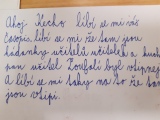 Ahoj Kecho líbí se mi váš
časopis líbí se mi že tam jsou
hádanky učitelů učitelek a kuch
pan učitel Zoufalí byl vtipnej
A líbí se mi taky na to že tam
jsou vtipi.